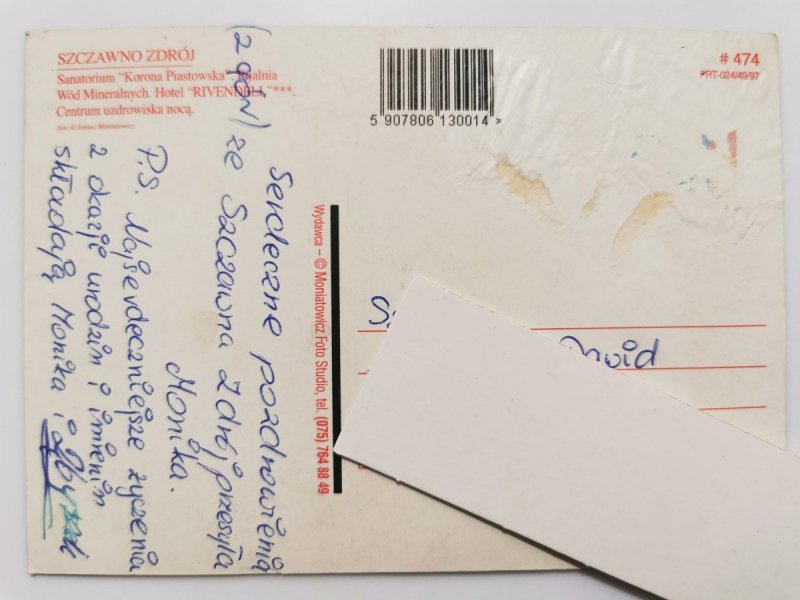 SZCZAWNO ZDRÓJ
Sanatorium "Korona Piastowska" Pijalnia
Wód Mineralnych. Hotel "RIVENDELL"***.
Centrum uzdrowiska nocą.
foto © Janusz Moniatowicz
5 907806 130014 >
# 474
PRT-024/49/97
Wydawca – © Moniatowicz Foto Studio, tel. (075) 764 88 49
Serdeczne pozdrowienia
ze Szczawna Zdrój przesyła
Monika.
P.S. Najserdeczniejsze życzenia
z okazji urodzin i imienin
składają Monika i Zbyszek